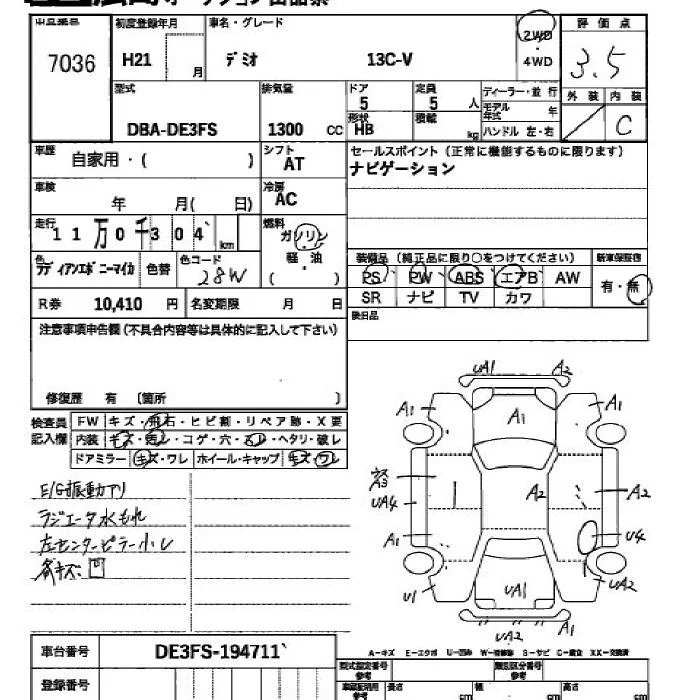 出品番号 7036
初度登録年月 H21 月
車名・グレード デミオ 13C-V
2WD・4WD
評価点 3.5
外装 内装 C
型式 DBA-DE3FS
排気量 1300 CC
ドア 5
形状 HB
定員 5 人
積載 kg
ディーラー・並行
モデル年式 年
ハンドル 左・右
車歴 自家用・( )
シフト AT
セールスポイント(正常に機能するものに限ります)
ナビゲーション
車検 年 月( 日)
冷房 AC
走行 11万0千304 km
燃料 ガソリン・軽油
( )
色 ラディアンエボニーマイカ
色替
色コード 28W
装備品(純正品に限り○をつけてください)
PS PW ABS エアB AW
SR ナビ TV カワ
新車保証書
有・無
R券 10,410 円
名変期限 月 日
後日品
注意事項申告欄(不具合内容等は具体的に記入して下さい)
修復歴 有 〔箇所 〕
検査員記入欄
FW キズ・飛石・ヒビ割・リペア跡・X要
内装 キズ・汚レ・コゲ・穴・スレ・ヘタリ・破レ
ドアミラー キズ・ワレ ホイール・キャップ キズ・ワレ
E/G振動アリ
ラジエータ水もれ
左センターピラー小レ
各キズ凹
UA1 A2
A1 A1 A1
A3
UA4 A2 A2
A1 U4
U1 UA1 UA2
UA2 A1
A-キズ E-エクボ U-凹み W-補修跡 S-サビ C-腐食 XX-交換済
車台番号 DE3FS-194711
登録番号
型式指定番号 参考
類別区分番号 参考
車庫証明用 参考
長さ cm
幅 cm
高さ cm